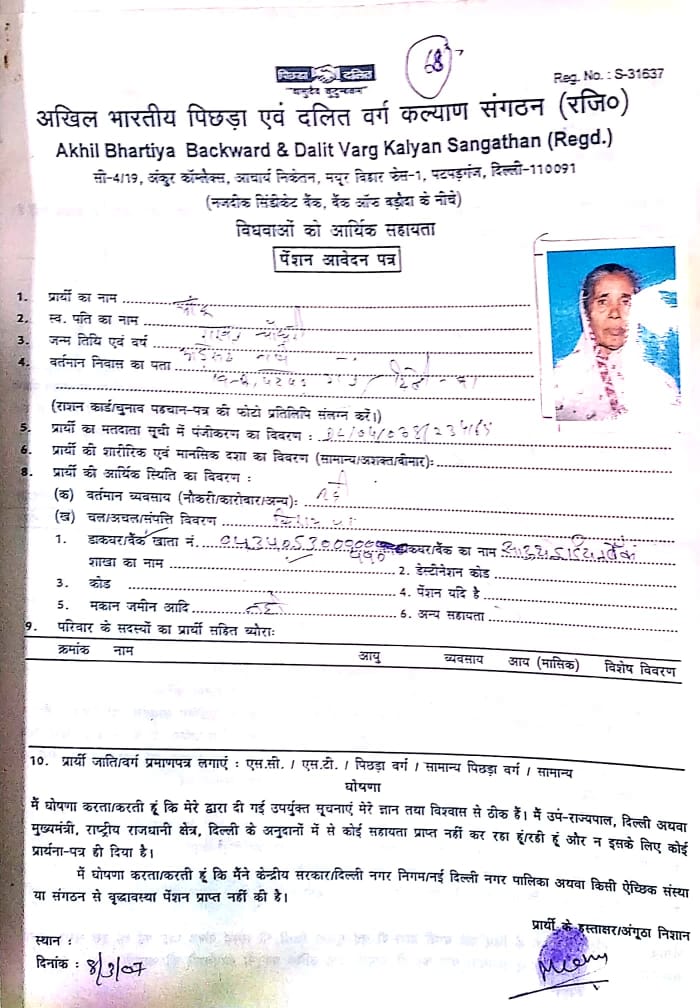 68
Reg. No. : S-31637
पिछड़ा दलित
"वासुदेव कुटुम्बकम"
अखिल भारतीय पिछड़ा एवं दलित वर्ग कल्याण संगठन (रजि०)
Akhil Bhartiya Backward & Dalit Varg Kalyan Sangathan (Regd.)
सी-4/19, अंकुर कॉम्प्लैक्स, आचार्य निकेतन, मयूर विहार फेस-1, पटपड़गंज, दिल्ली-110091
(नजदीक सिंडीकेट बैंक, बैंक ऑफ बड़ौदा के नीचे)
विधवाओं को आर्थिक सहायता
पेंशन आवेदन पत्र
1. प्रार्थी का नाम
2. स्व. पति का नाम
3. जन्म तिथि एवं वर्ष
4. वर्तमान निवास का पता
(राशन कार्ड/चुनाव पहचान-पत्र की फोटो प्रतिलिपि संलग्न करें।)
5. प्रार्थी का मतदाता सूची में पंजीकरण का विवरण :
6. प्रार्थी की शारीरिक एवं मानसिक दशा का विवरण (सामान्य/अशक्त/बीमार):
8. प्रार्थी की आर्थिक स्थिति का विवरण :
(क) वर्तमान व्यवसाय (नौकरी/कारोबार/अन्य):
(ख) चल/अचल/संपत्ति विवरण
1. डाकघर/बैंक खाता नं. डाकघर/बैंक का नाम
शाखा का नाम 2. डेस्टीनेशन कोड
3. कोड 4. पेंशन यदि है
5. मकान जमीन आदि 6. अन्य सहायता
9. परिवार के सदस्यों का प्रार्थी सहित ब्योराः
क्रमांक नाम आयु व्यवसाय आय (मासिक) विशेष विवरण
10. प्रार्थी जाति/वर्ग प्रमाणपत्र लगाएं : एस.सी. / एस.टी. / पिछड़ा वर्ग / सामान्य पिछड़ा वर्ग / सामान्य
घोषणा
मैं घोषणा करता/करती हूं कि मेरे द्वारा दी गई उपर्युक्त सूचनाएं मेरे ज्ञान तथा विश्वास से ठीक हैं। मैं उप-राज्यपाल, दिल्ली अथवा
मुख्यमंत्री, राष्ट्रीय राजधानी क्षेत्र, दिल्ली के अनुदानों में से कोई सहायता प्राप्त नहीं कर रहा हूं/रही हूं और न इसके लिए कोई
प्रार्थना-पत्र ही दिया है।
में घोषणा करता/करती हूं कि मैंने केन्द्रीय सरकार/दिल्ली नगर निगम/नई दिल्ली नगर पालिका अथवा किसी ऐच्छिक संस्था
या संगठन से वृद्धावस्था पेंशन प्राप्त नहीं की है।
प्रार्थी के हस्ताक्षर/अंगूठा निशान
स्थान :
दिनांक : 8/3/07